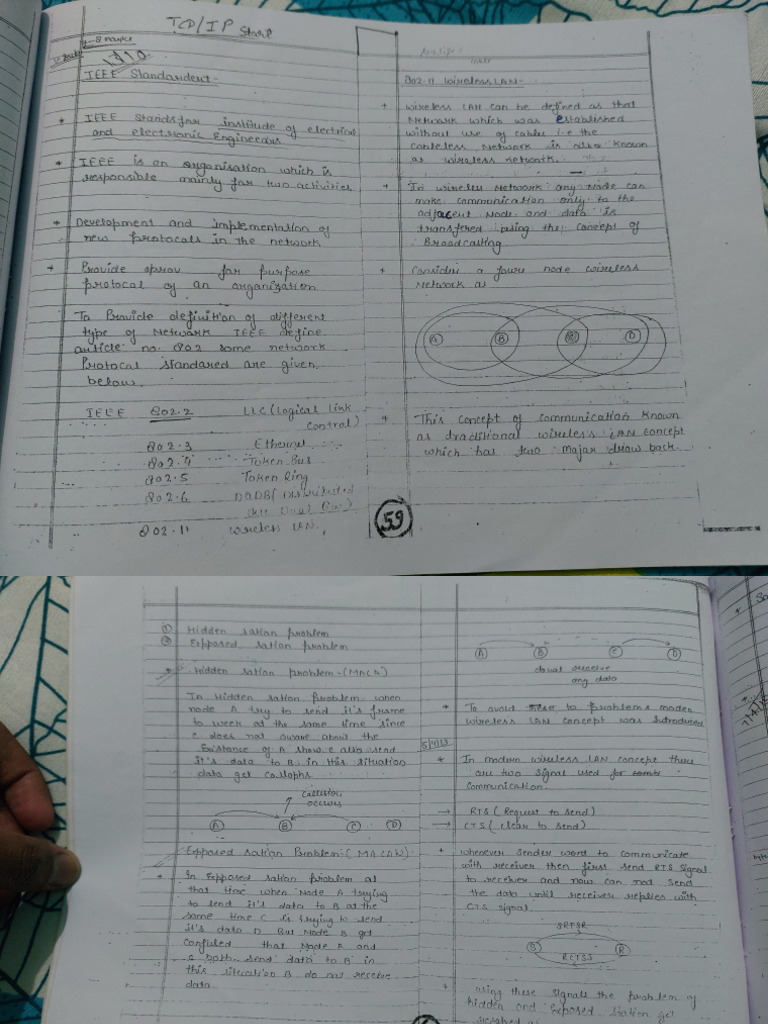 TCP/IP Start
IEEE Standardent-
* IEEE Stands for institude of electrical
and electronic Engineers
* IEEE is an organisation which is
responsible mainly for two activities
* Development and implementation of
new protocols in the network
* Provide for purpose
protocol of an organization
To Provide definition of different
type of Network IEEE define
article no. 802 some network
Protocol standared are given
below.
IEEE 802.2 LLC (Logical Link
Control)
802.3 Ethernet
802.4 Token Bus
802.5 Token Ring
802.6 DQDB (Distributed
Dual Bus)
802.11 wireless LAN.
802.11 wireless LAN-
* wireless LAN can be defined as that
Network which was Established
without use of cables i.e the
cableless Network is also known
as wireless network.
* In wireless Network any Node can
make communication only to the
adjacent Node and data is
transfered using the concept of
Broadcasting
* Consider a four node wireless
Network as
A B C D
* This concept of communication known
as draditional wireless LAN concept
which has two major draw back.
59
① Hidden sation problem
② Exposed sation problem
* Hidden sation problem-(MACA)
In Hidden sation Problem when
node A try to send it's frame
to at the same time since
C does not aware about the
Existance of A C also send
it's data to B in this situation
data get
collision
occures
A B C D
Exposed sation Problem:(MACAW)
* In Exposed sation problem at
that time when Node A trying
to send it's data to B at the
same time C is trying to send
it's data D But Node B get
confused that Node A and
C both send data to B in
this situation B do not receive
data
A B C D
receive
any data
* To avoid to problems moden
wireless LAN concept was introduced
* In modern wireless LAN concept there
are two signal used for
communication.
→ RTS (Request to send)
→ CTS (clear to send)
* whenever sender word to communicate
with receiver then first send RTS signal
to receiver and now can not send
the data until receiver replies with
CTS signal.
SRTSR
S R
RCTSS
* using these signals the problem of
hidden and Exposed station get